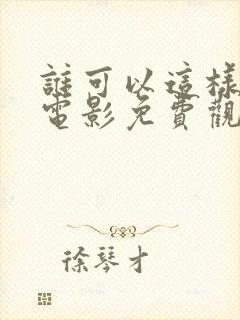 誰可以這樣
電影免費觀
徐琴才